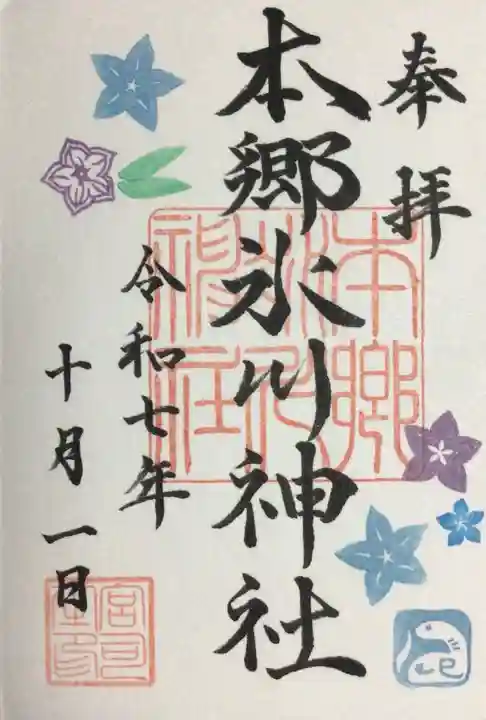 奉拝
本郷氷川神社
令和七年
十月一日
本郷氷川神社
巳